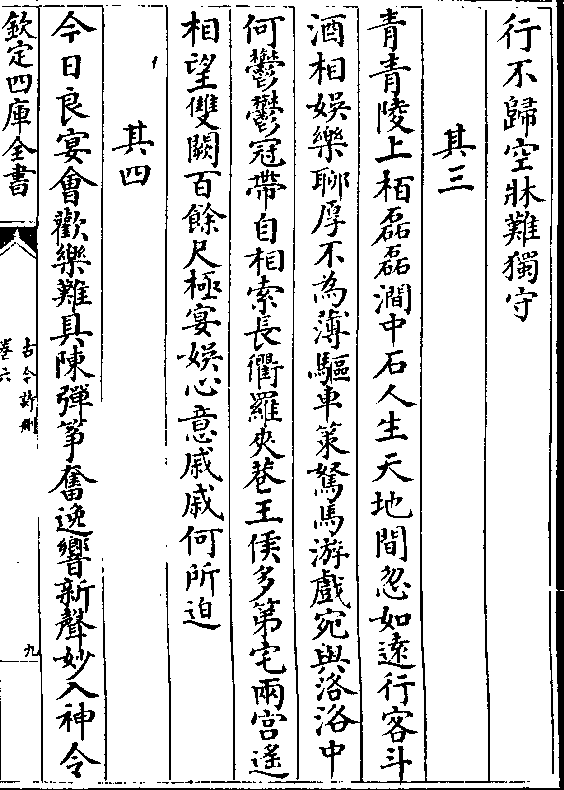 行不歸空牀難獨守
其三
青青陵上栢磊磊澗中石人生天地間忽如逺行客斗
酒相娯樂聊厚不為薄驅車策駑馬游戲宛與洛洛中
何鬱鬱冠帶自相索長衢羅夾巷王侯多第宅兩宫遥
相望雙闕百餘尺極宴娯心意戚戚何所迫
其四
今日良宴會歡樂難具陳彈筝奮逸響新聲妙入神令
欽定四庫全書
古今詩刪
卷六
九